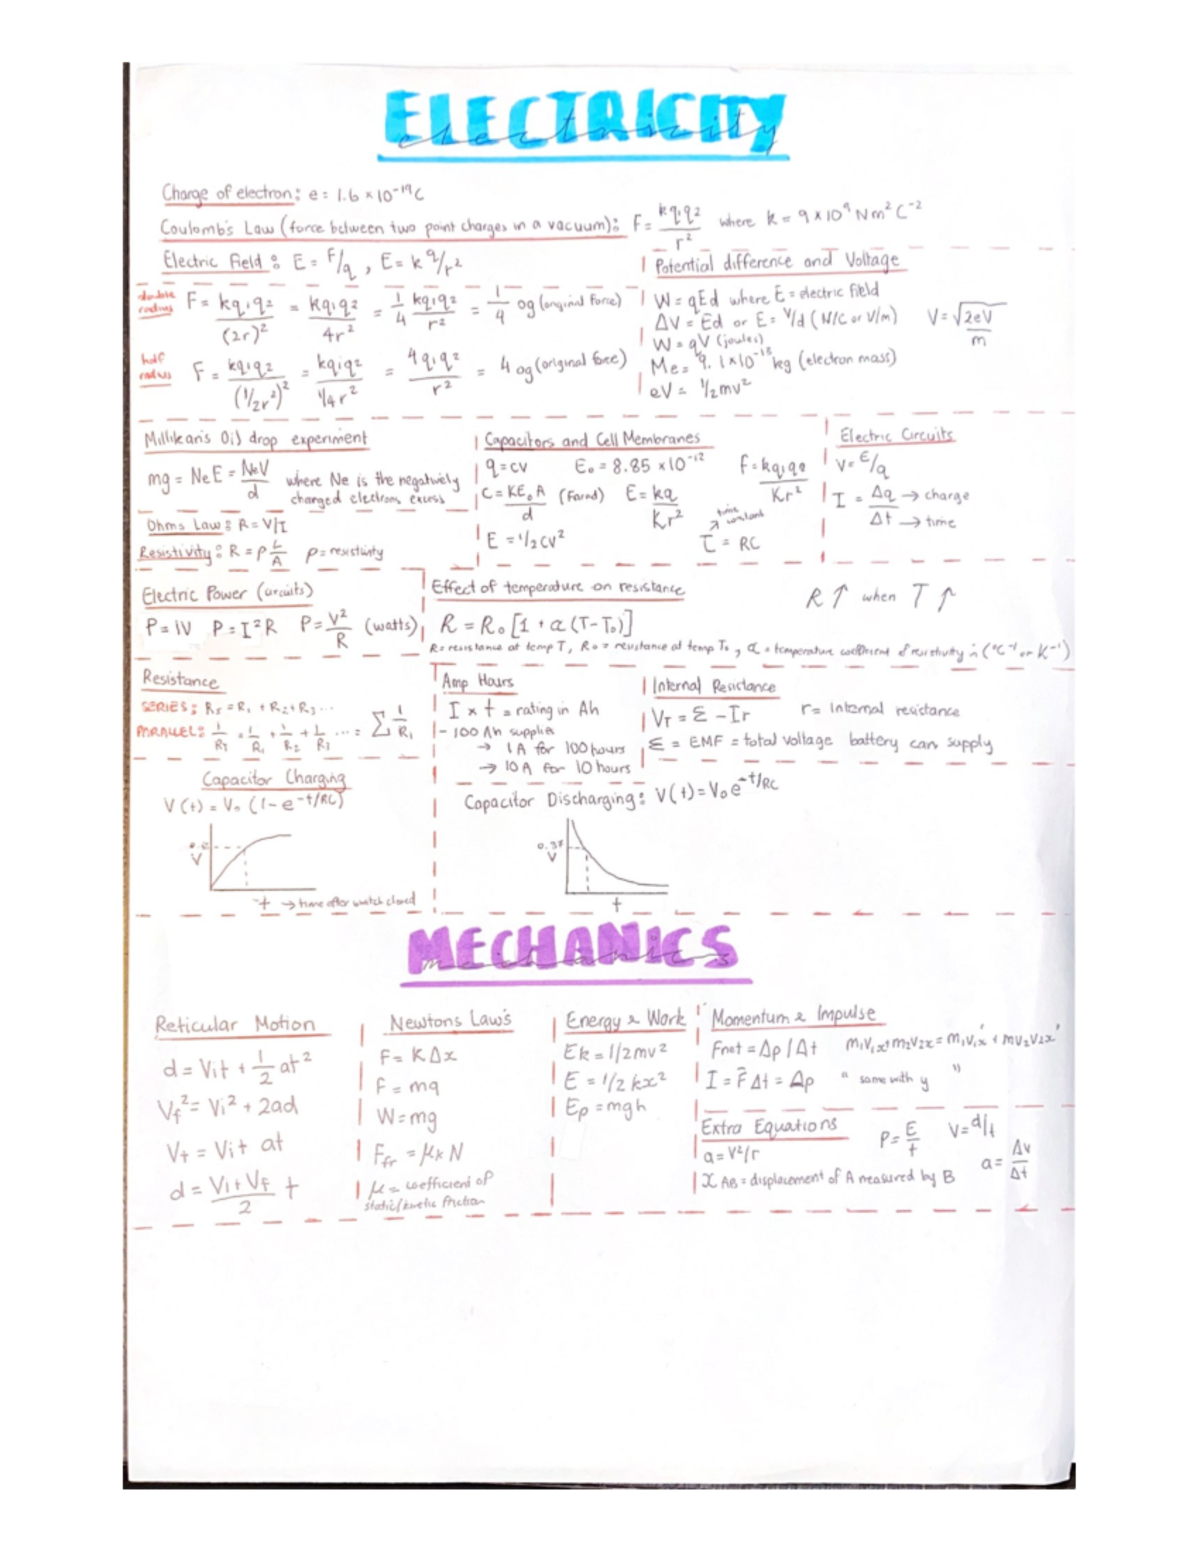 ELECTRICITY
electricity
Charge of electron: e = 1.6 × 10⁻¹⁹C
Coulomb's Law (force between two point charges in a vacuum): F = kq₁q₂/r² where k = 9 × 10⁹ Nm²C⁻²
Electric Field: E = F/q, E = k q/r²
double radius F = kq₁q₂/(2r)² = kq₁q₂/4r² = 1/4 kq₁q₂/r² = 1/9 og (original force)
half radius F = kq₁q₂/(½r²)² = kq₁q₂/¼r² = 4q₁q₂/r² = 4 og (original force)
Potential difference and Voltage
W = qEd where E = electric field
ΔV = Ed or E = V/d (N/C or V/m) V = √2eV/m
W = qV (joules)
Me = 9.1×10⁻¹³ kg (electron mass)
eV = ½mv²
Millikan's Oil drop experiment
mg = NeE = NeV/d where Ne is the negatively charged electrons excess
Ohms Law: R = V/I
Resistivity: R = ρ L/A ρ = resistivity
Capacitors and Cell Membranes
q = cv E₀ = 8.85 × 10⁻¹² F = kq₁q₂/Kr²
C = KE₀A/d (Farad) E = kq/Kr²
time constant
E = ½cv² τ = RC
Electric Circuits
V = E/q
I = Δq → charge
Δt → time
Electric Power (circuits)
P = IV P = I²R P = V²/R (watts)
Effect of temperature on resistance R↑ when T↑
R = R₀[1 + α(T-T₀)]
R = resistance at temp T, R₀ = resistance at temp T₀, α = temperature coefficient of resistivity in (°C⁻¹ or K⁻¹)
Resistance
SERIES: Rs = R₁ + R₂ + R₃ ...
PARALLEL: 1/R₁ = 1/R₁ + 1/R₂ + 1/R₃ ... = Σ 1/R₁
Amp Hours
I × t = rating in Ah
- 100 Ah supplies
→ 1A for 100 hours
→ 10A for 10 hours
Internal Resistance
V_T = Ɛ - Ir r = internal resistance
Ɛ = EMF = total voltage battery can supply
Capacitor Charging
V(t) = V₀ (1-e⁻ᵗ/RC)
V
t → time after switch closed
Capacitor Discharging: V(t) = V₀e⁻ᵗ/RC
0.37
V
t
MECHANICS
mechanics
Reticular Motion
d = Vit + 1/2 at²
Vf² = Vi² + 2ad
Vt = Vi + at
d = Vi + Vf/2 t
Newtons Law's
F = KΔx
F = ma
W = mg
Ffr = μkN
μ = coefficient of
static/kinetic friction
Energy & Work
Ek = 1/2mv²
E = 1/2 kx²
Ep = mgh
Momentum & Impulse
Fnet = Δp/Δt m₁V₁x + m₂V₂x = m₁V₁x' + mV₂V₂x'
I = F̄Δt = Δp " same with y "
Extra Equations P = E/t V = d/t
a = V²/r a = Δv/Δt
x AB = displacement of A measured by B